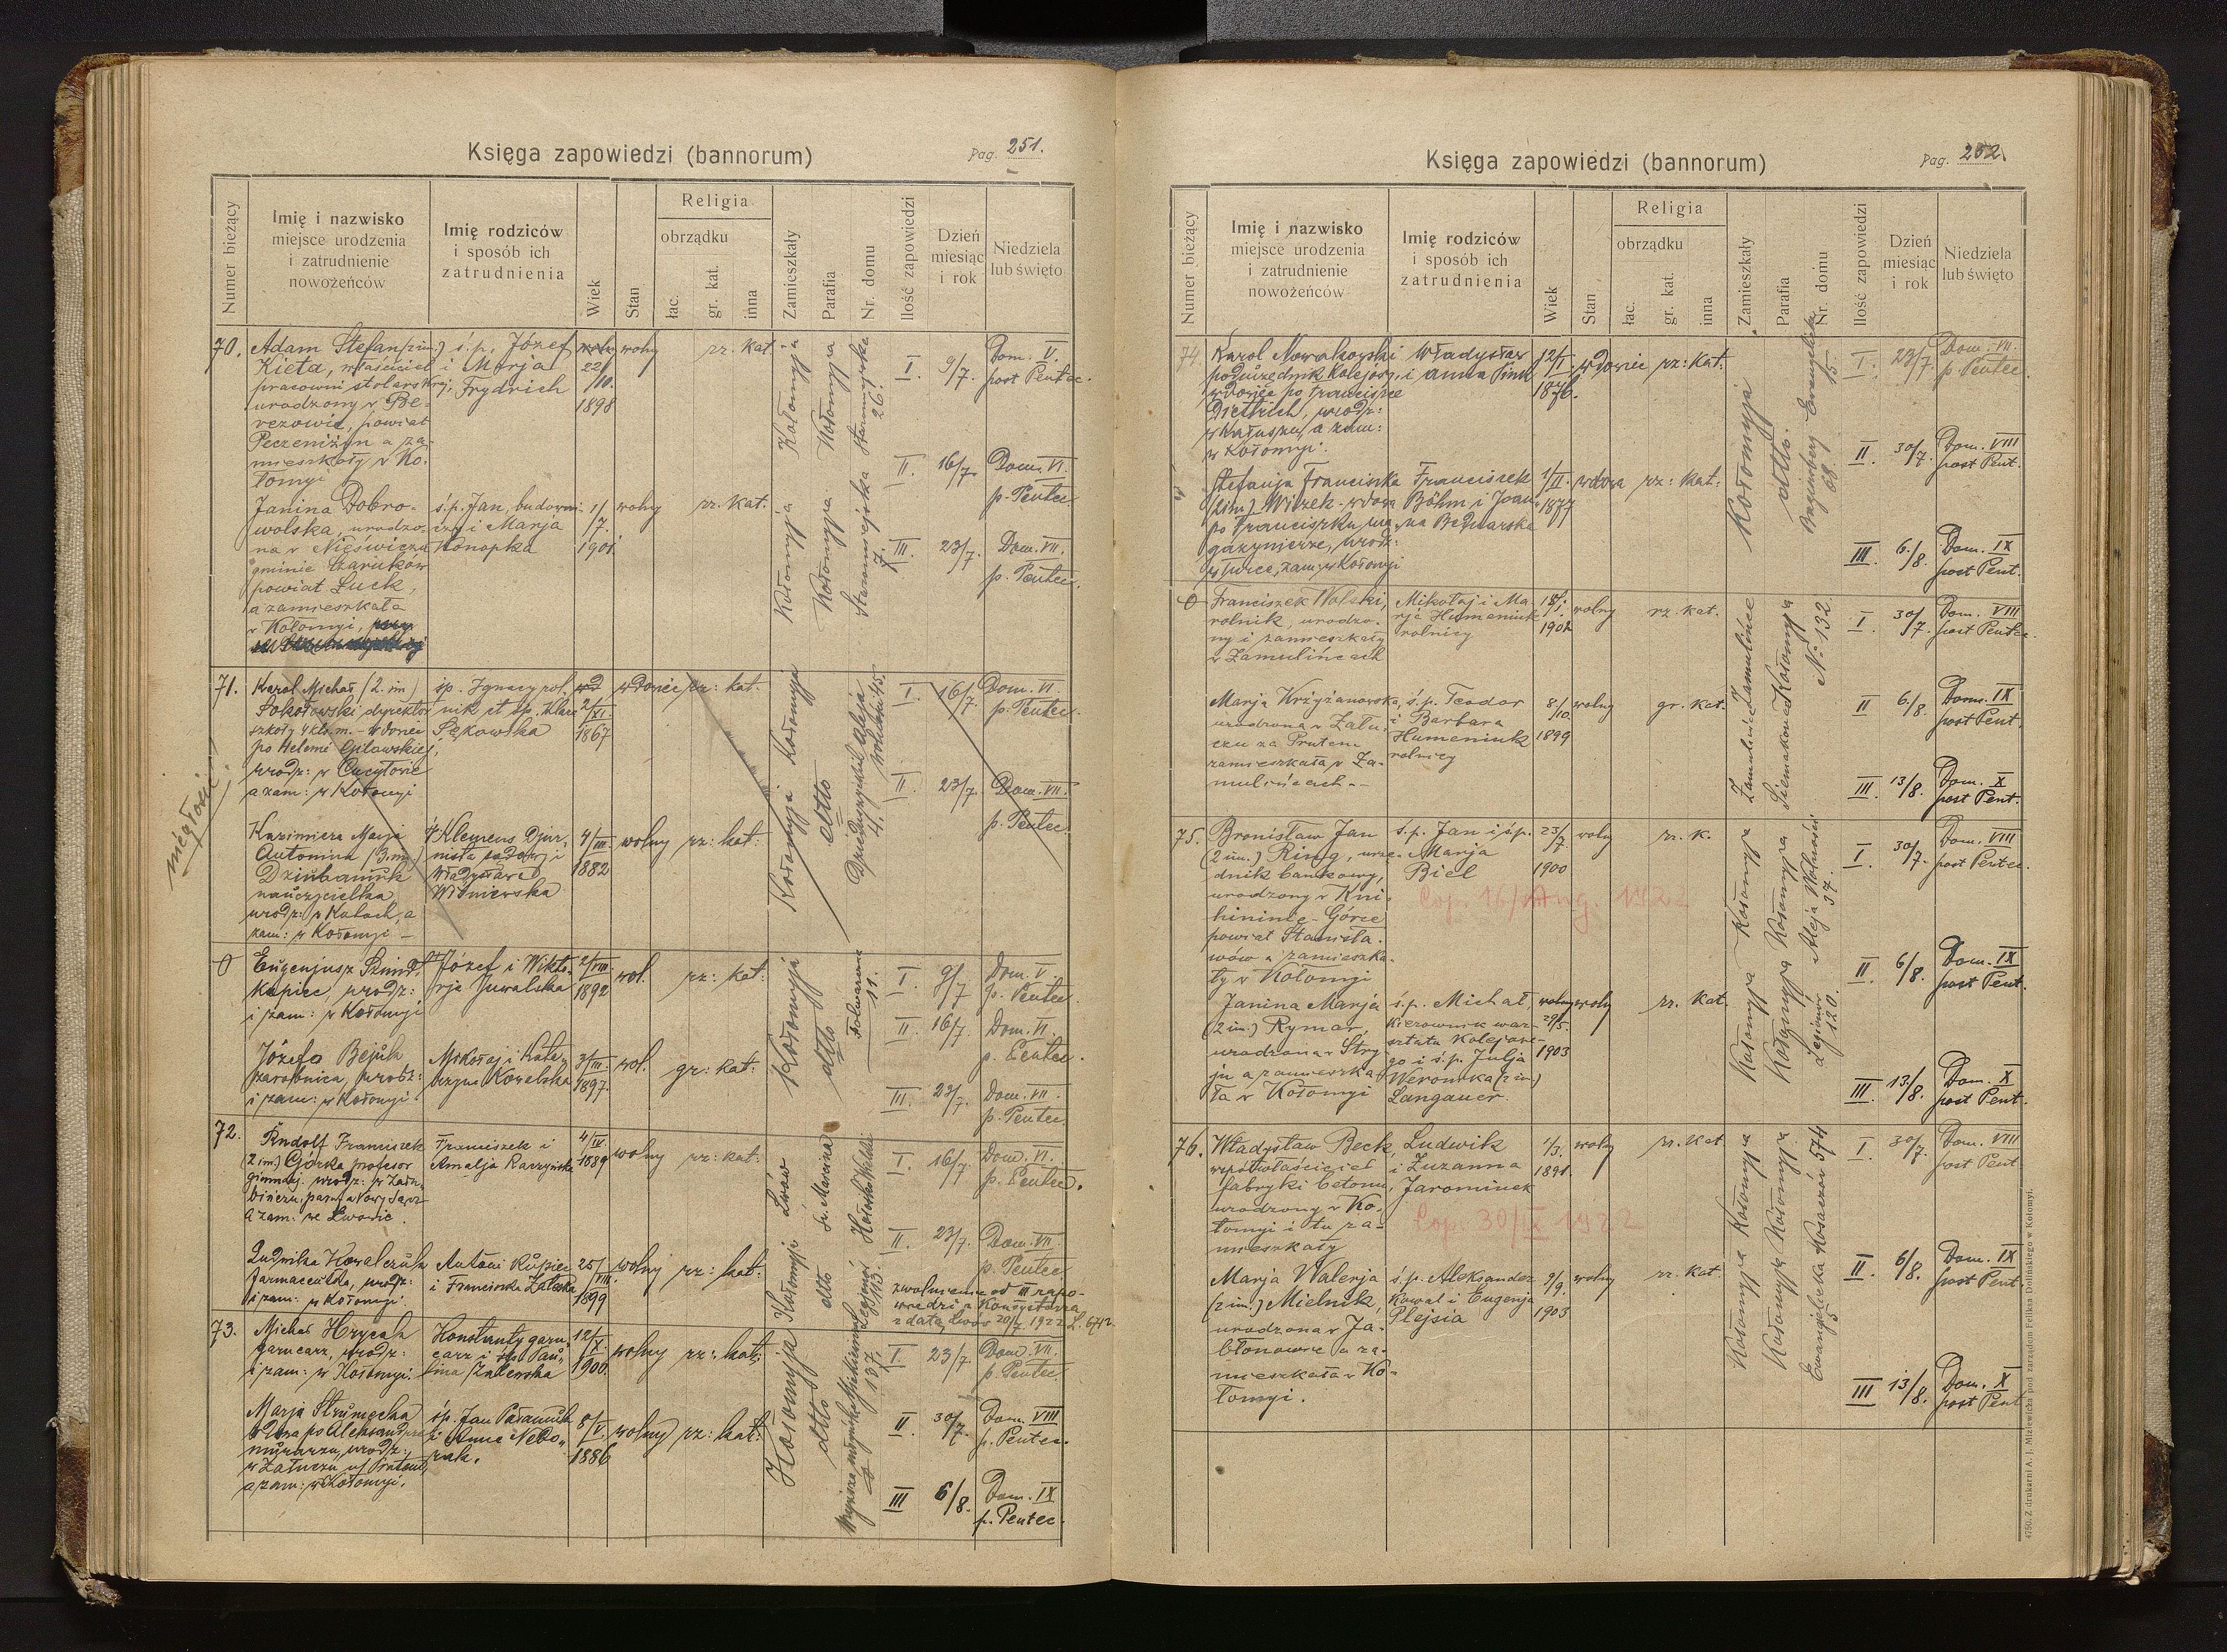 Księga zapowiedzi (bannorum)
Pag. 251.
Numer bieżący
Imię i nazwisko
miejsce urodzenia
i zatrudnienie
nowożeńców
Imię rodziców
i sposób ich
zatrudnienia
Wiek
Stan
Religia
obrządku
łac.
gr. kat.
inna
Zamieszkały
Parafia
Nr. domu
Ilość zapowiedzi
Dzień
miesiąc
i rok
Niedziela
lub święto
70.
Adam Stefan (2 im)
Kieta, właściciel
pracowni stolarskiej,
urodzony w Be-
rezowie, powiat
Peczeniżyn a za-
mieszkały w Ko-
łomyi
ś.p. Józef
i Marja
Frydrich
22/
/10.
1898
wolny
rz. kat.
Kołomyja
Kołomyja
26.
I.
9/7.
Dom. V.
post Pentec.
II.
16/7.
Dom. VI.
p. Pentec.
III.
23/7.
Dom. VII.
p. Pentec.
Janina Dobro-
wolska, urodzo-
na w Nieświczu
gminie Czaruków
powiat Łuck,
a zamieszkała
w Kołomyi,
ś.p. Jan, budowni-
czy i Marja
Konopka
1/
7.
1901
wolny
rz. kat.
Kołomyja
Kołomyja
Staromiejska
7.
71.
Karol Michał (2. im)
Sokołowski dyrektor
szkoły 4 kls. m. - wdowiec
po Helenie
urodz: w Cucyłowie
a zam: w Kołomyi
śp. Ignacy rol-
nik et śp. Klara
Sękowska
2/XI.
1867
wdowiec
rz: kat.
Kołomyja
I.
16/7.
Dom. VI.
p. Pentec.
II.
23/7.
Dom. VII.
p. Pentec.
Kazimiera Marja
Antonina (3. im)
Dziubaniuk
nauczycielka
urodz: w Kutach, a
zam: w Kołomyi -
Klemens Dziur-
nista sądowy i
Władysława
Wiśniewska
4/III
1882
wolny
rz: kat:
Kołomyja
ditto
0
Eugenjusz Szmidt,
kupiec, urodz:
i zam: w Kołomyi
Józef i Wikto-
rja Juwalska
2/VIII.
1892
wol.
rz: kat:
Kołomyja
dtto
11.
I.
9/7
Dom. V.
p. Pentec.
II.
16/7.
Dom. VI.
p. Pentec.
III.
23/7.
Dom. VII.
p. Pentec.
Józefa Bejuk
zarobnica, urodz:
i zam: w Kołomyi.
Mikołaj i Kata-
rzyna Kowalska
3/III.
1897.
wol.
gr: kat:
72.
Rudolf Franciszek
(2 im) Górka profesor
gimnazj. urodz: w Zału-
bińczu, parafia Nowy Sącz
a zam: we Lwowie.
Franciszek i
Amalja Raczyńska
4/IV.
1889
wolny
rz: kat:
Lwów
I.
16/7
Dom. VI.
p. Pentec.
II.
23/7.
Dom. VII.
p. Pentec.
Ludwika Kowalczuk
farmaceutka, urodz:
i zam: w Kołomyi.
Antoni kupiec
i Franciszka Zaleska
25/VIII.
1899
wolny
rz: kat:
Kołomyja
dtto
zwolnienie od III zapo-
wiedzi z Konsystorza
z datą Lwów 20/7 1922 L. 6712
73.
Michał Hrycak
garncarz, urodz:
i zam: w Kołomyi.
Konstanty garn-
carz i śp. Pau-
lina Zalewska
12/X.
1900.
wolny
rz: kat:
Kołomyja
dtto
137.
I.
23/7
Dom. VII.
p. Pentec.
II
30/7
Dom. VIII
p. Pentec.
III
6/8.
Dom. IX
p. Pentec.
Marja Strumecka
wdowa po Aleksandrze
murarzu, urodz:
w Załuczu n/ Prutem,
a zam: w Kołomyi.
śp. Jan Pałaniuk
i Anna Nebo-
rak.
8/V.
1886
wolny
rz: kat:
Księga zapowiedzi (bannorum)
Pag. 252
Numer bieżący
Imię i nazwisko
miejsce urodzenia
i zatrudnienie
nowożeńców
Imię rodziców
i sposób ich
zatrudnienia
Wiek
Stan
Religia
obrządku
łac.
gr. kat.
inna
Zamieszkały
Parafia
Nr. domu
Ilość zapowiedzi
Dzień
miesiąc
i rok
Niedziela
lub święto
74
Karol Nowakowski
podurzędnik kolejow.
wdowiec po Franciszce
Dietrich, urodz:
w Kałuszu, a zam:
w Kołomyi.
Władysław
i Anna Pink
12/I.
1876.
wdowiec
rz: kat.
Kołomyja
ditto.
15.
I.
23/7.
Dom. VII.
p. Pentec.
II
30/7.
Dom. VIII
post Pent.
III
6./8.
Dom. IX
post Pent.
Stefanja Franciszka
(2 im.) Wilczek - wdowa
po Franciszku ma-
gazynierze, urodz:
w Turce, zam: w Kołomyi
Franciszek
Böhm i Joan-
na Bednarska
1/II.
1877
wdowa
rz: kat:
68.
0
Franciszek Wolski,
rolnik, urodzo-
ny i zamieszkały
w Zamulińcach
Mikołaj i Ma-
rja Humeniuk
rolnicy
18/1.
1902
wolny
rz. kat.
Zamulińce
Kołomyja
No 132.
I.
30/7.
Dom. VIII
post Pentec.
II
6/8.
Dom. IX
post Pent.
III.
13/8.
Dom. X
post Pent.
Marja Krżyżanowska,
urodzona w Zału-
czu za Prutem
zamieszkała w Za-
mulińcach.-
ś.p. Teodor
i Barbara
Humeniuk
rolnicy
8/10.
1899
wolny
gr. kat.
Zamulińce
Siemakowce
75.
Bronisław Jan
(2 im.) Ring, urzę-
dnik bankowy,
urodzony w Kni-
hininie - Górce
powiat Stanisła-
wów a zamieszka-
ły w Kołomyi
ś.p. Jan i ś.p.
Marja
Biel
23/7.
1900
wolny
rz. k.
Cop. 16/ Aug. 1922
Kołomyja
Kołomyja
Aleja Wolności
37.
I.
30/7.
Dom. VIII
post Pentec.
II
6/8.
Dom. IX
post Pent.
III
13/8.
Dom. X
post Pent.
Janina Marja
(2 im.) Rymar,
urodzona w Stry-
ju a zamieszka-
ła w Kołomyi
ś.p. Michał,
kierownik war-
sztatu kolejowe-
go i ś.p. Julja
Weronika (2 im)
Langauer.
29/5.
1903
wolny
rz. kat.
Kołomyja
Kołomyja
Legjonów
120.
76.
Władysław Beck,
współwłaściciel
fabryki betonu,
urodzony w Ko-
łomyi i tu za-
mieszkały
Ludwik
i Zuzanna
Jarominek
1/3.
1891.
wolny
rz. kat.
Cop. 30/IX 1922
Kołomyja
Kołomyja
Kosaczów 574
I.
30/7.
Dom. VIII
post Pent.
II.
6/8.
Dom. IX
post Pent.
III
13/8.
Dom. X
post Pent
Marja Walerja
(2 im.) Mielnik,
urodzona w Ja-
błonowie a za-
mieszkała w Ko-
łomyi.
ś.p. Aleksander
Kowal i Eugenja
Plejsia
9/9.
1903
wolny
rz. kat.
Kołomyja
Kołomyja
Ewangielicka
5
4750. Z drukarni A. J. Miziewicza pod zarządem Feliksa Dolińskiego w Kołomyi.